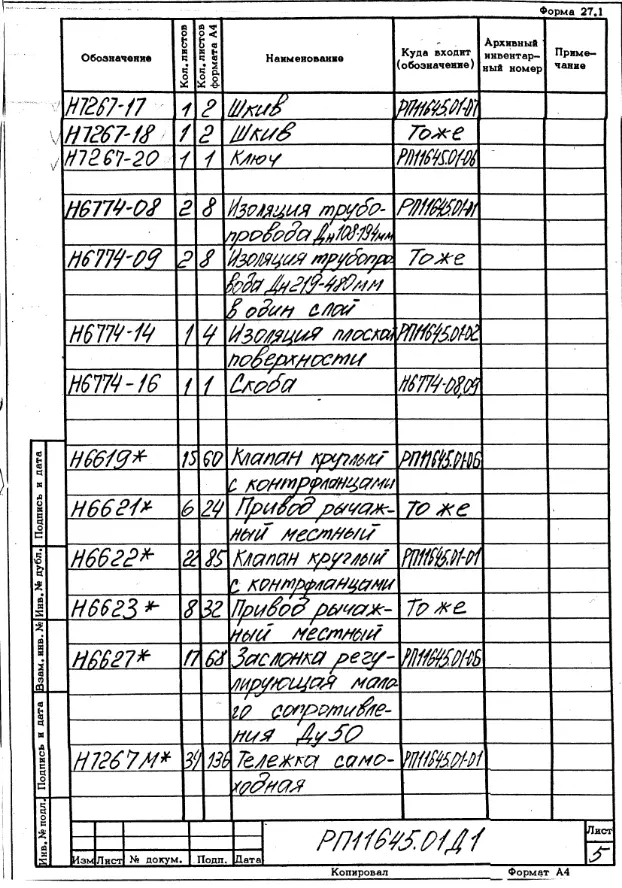 Форма 27.1
Обозначение Кол.листов Кол.листов формата А4 Наименование Куда входит (обозначение) Архивный инвентарный номер Примечание
Н7267-17 1 2 Шкив РП11645.01-01
Н7267-18 1 2 Шкив То же
Н7267-20 1 1 Ключ РП11645.01-06
Н6774-08 2 8 Изоляция трубо- РП11645.01-01
провода Дн108-194мм
Н6774-09 2 8 Изоляция трубопро То же
вода Дн219-480мм
в один слой
Н6774-14 1 4 Изоляция плоской РП11645.01-02
поверхности
Н6774-16 1 1 Скоба Н6774-08,09
Н6619* 15 60 Клапан круглый РП11645.01-06
с контрфланцами
Н6621* 6 24 Привод рычаж- То же
ный местный
Н6622* 22 85 Клапан круглый РП11645.01-01
с контрфланцами
Н6623* 8 32 Привод рычаж- То же
ный местный
Н6627* 17 68 Заслонка регу- РП11645.01-06
лирующая мало
го сопротивле-
ния Ду50
Н7267М* 34 136 Тележка само- РП11645.01-01
ходная
Инв.№ подл. Подпись и дата Взам. инв. № Инв.№ дубл. Подпись и дата
РП11645.01Д1
Лист
5
Изм Лист № докум. Подп. Дата
Копировал Формат А4